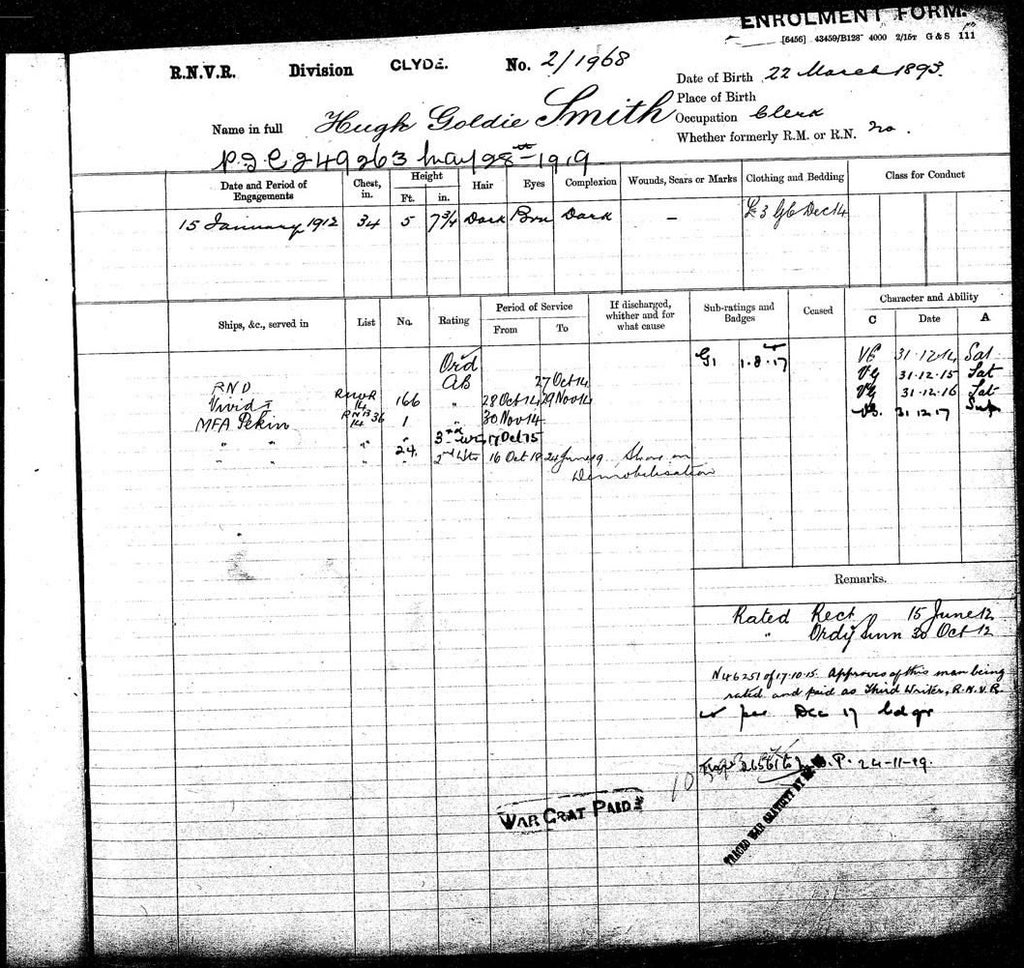 ENROLMENT FORM.
[6456] 43459/B128 4000 2/15T G & S 111
R.N.V.R. Division CLYDE. No. 2/1968
Date of Birth 22 March 1893.
Place of Birth
Occupation Clerk
Whether formerly R.M. or R.N. no.
Name in full Hugh Goldie Smith
249263 May 28th 1919
Date and Period of Engagements Chest, in. Height Ft. in. Hair Eyes Complexion Wounds, Scars or Marks Clothing and Bedding Class for Conduct
15 January 1912 34 5 7 3/4 Dark Brn Dark – £3 Dec 14
Ships, &c., served in List No. Rating Period of Service From To If discharged, whether and for what cause Sub-ratings and Badges Ceased Character and Ability C Date A
Ord G1 1.8.17 VG 31.12.14 Sat
RND AB 27 Oct 14 VG 31.12.15 Sat
Vivid I RNVR 14 166 " 28 Oct 14 29 Nov 14 VG 31.12.16 Sat
MFA Pekin RNB 36 14 1 " 30 Nov 14 VG. 31.12.17 Sup
" " " " 3rd Wr 17 Oct 15
" " " 24. 2nd Wtr 16 Oct 18 24 June 19 Shore on
Demobilisation
Remarks.
Rated Rect 15 June 12
" Ordy Smn 30 Oct 12
N46251 of 17.10.15. Approves of this man being
rated and paid as Third Writer, R.N.V.R.
per Dec 17 ledgr
265616 24-11-19.
10
WAR GRAT PAID
TRACED WAR GRATUITY